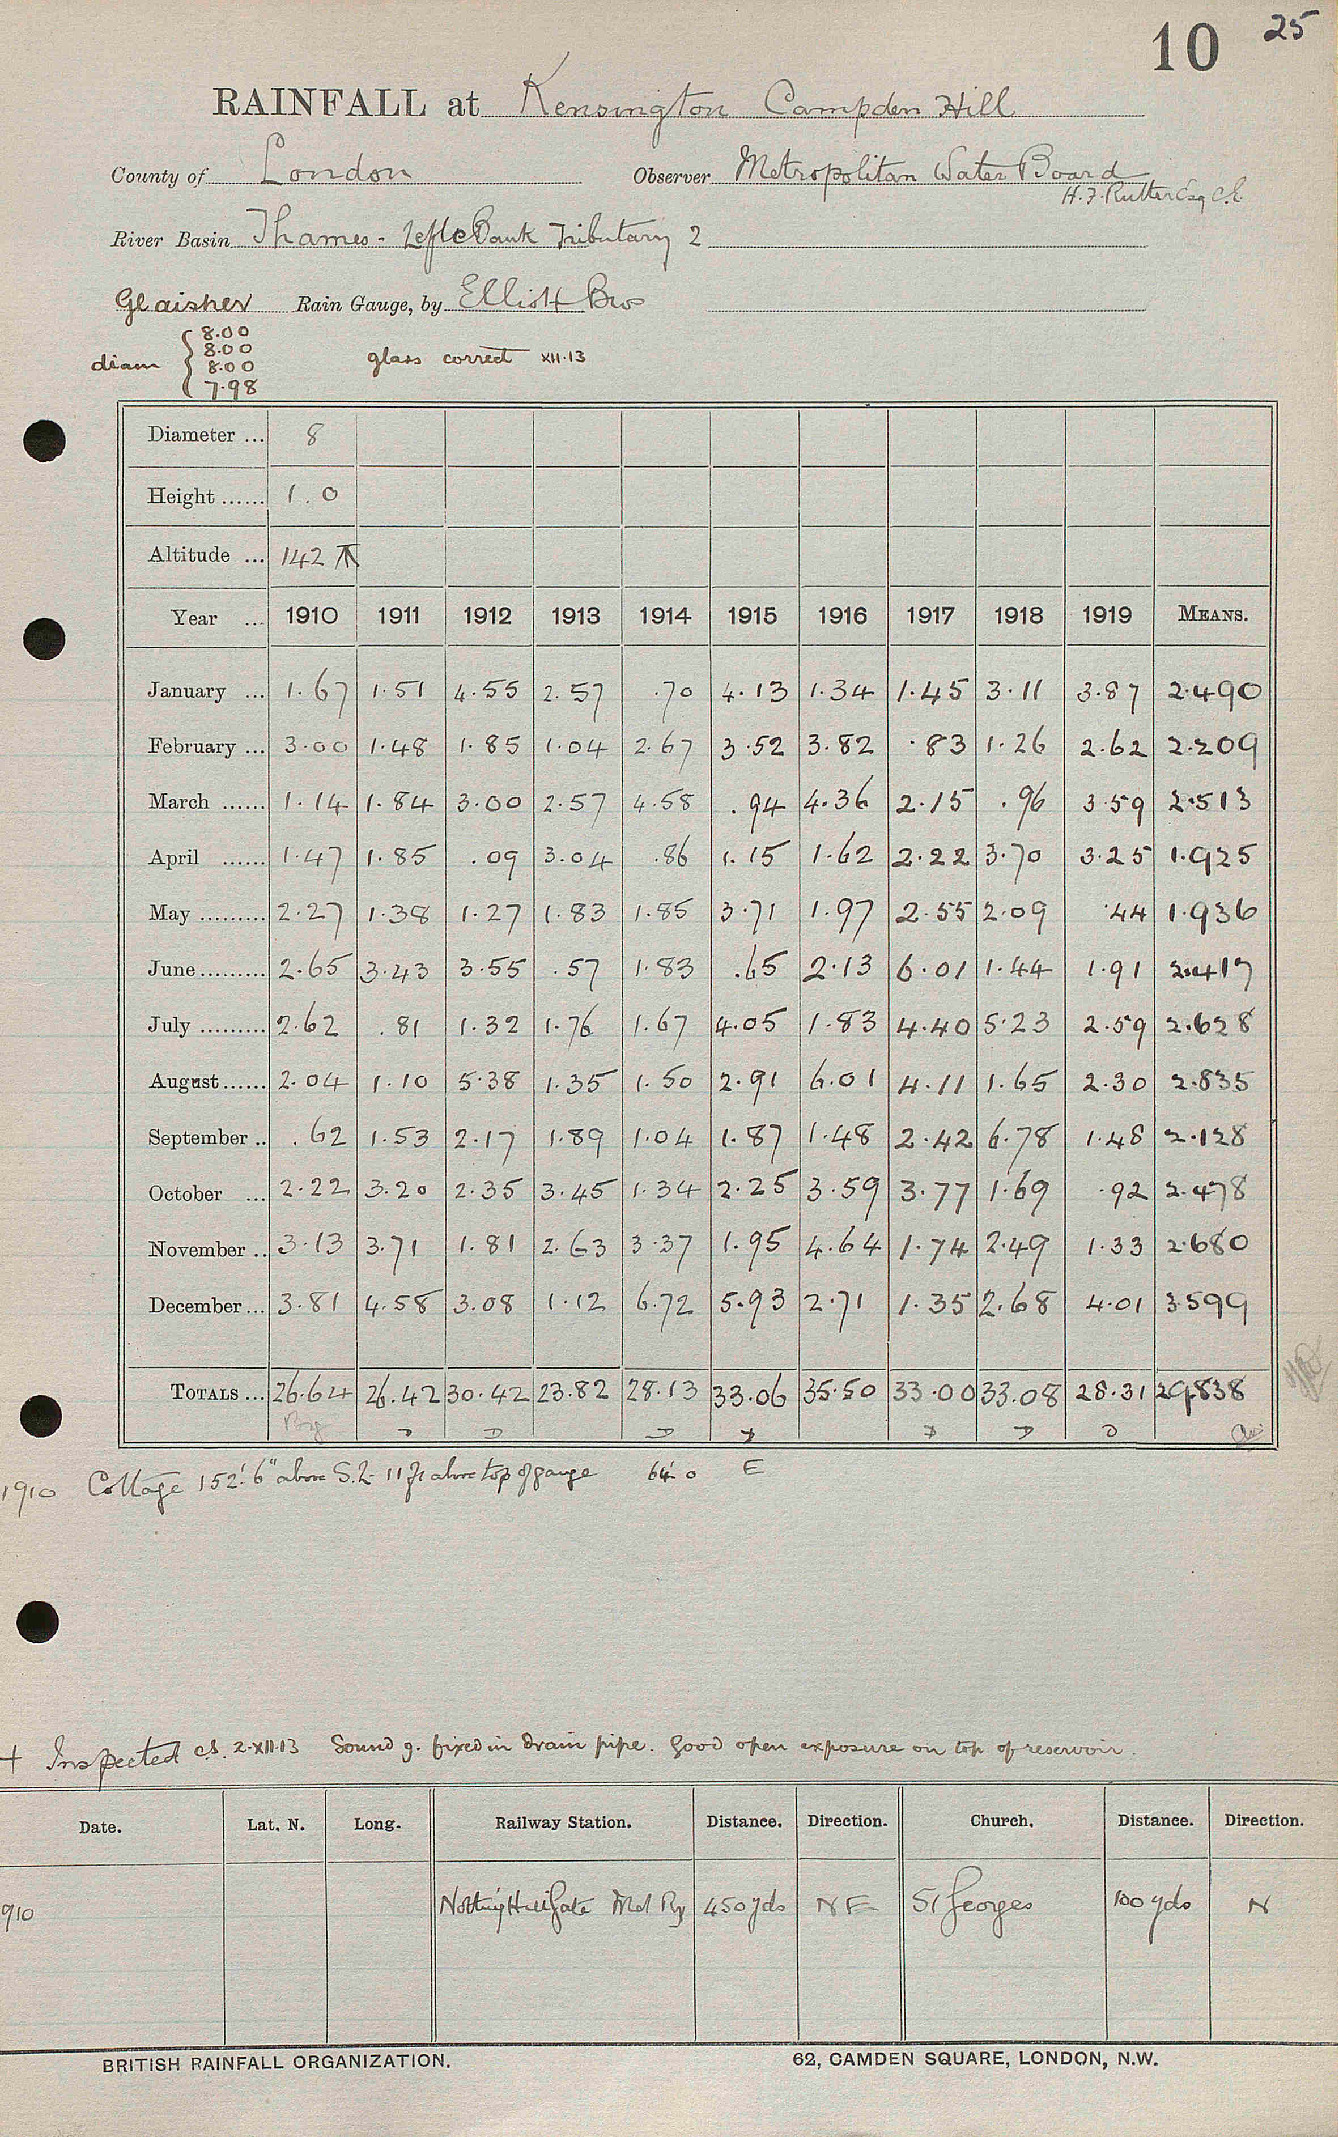 10 25
RAINFALL at Kensington Campden Hill
County of London Observer Metropolitan Water Board
H. F. Rutter Esq C.E.
River Basin Thames - Left Bank Tributary 2
Glaisher Rain Gauge, by Elliott Bros
diam { 8.00
8.00
8.00
7.98
glass correct XII.13
Diameter ... 8
Height ...... 1.0
Altitude ... 142
Year ... 1910 1911 1912 1913 1914 1915 1916 1917 1918 1919 MEANS.
January ... 1.67 1.51 4.55 2.57 .70 4.13 1.34 1.45 3.11 3.87 2.490
February ... 3.00 1.48 1.85 1.04 2.67 3.52 3.82 .83 1.26 2.62 2.209
March ...... 1.14 1.84 3.00 2.57 4.58 .94 4.36 2.15 .96 3.59 2.513
April ...... 1.47 1.85 .09 3.04 .86 1.15 1.62 2.22 3.70 3.25 1.925
May ......... 2.27 1.38 1.27 1.83 1.85 3.71 1.97 2.55 2.09 .44 1.936
June ......... 2.65 3.43 3.55 .57 1.83 .65 2.13 6.01 1.44 1.91 2.417
July ......... 2.62 .81 1.32 1.76 1.67 4.05 1.83 4.40 5.23 2.59 2.628
August ...... 2.04 1.10 5.38 1.35 1.50 2.91 6.01 4.11 1.65 2.30 2.835
September .. .62 1.53 2.17 1.89 1.04 1.87 1.48 2.42 6.78 1.48 2.128
October ... 2.22 3.20 2.35 3.45 1.34 2.25 3.59 3.77 1.69 .92 2.478
November .. 3.13 3.71 1.81 2.63 3.37 1.95 4.64 1.74 2.49 1.33 2.680
December ... 3.81 4.58 3.08 1.12 6.72 5.93 2.71 1.35 2.68 4.01 3.599
TOTALS ... 26.64 26.42 30.42 23.82 28.13 33.06 35.50 33.00 33.08 28.31 29.838
1910 Cottage 152'.6" above S.L. 11 ft above top of gauge 64'.0 E
+ Inspected c.s. 2.XII.13 Sound g. fixed in drain pipe. Good open exposure on top of reservoir.
Date. Lat. N. Long. Railway Station. Distance. Direction. Church. Distance. Direction.
910 Notting Hill Gate Met Ry 450 yds NE St Georges 100 yds N
BRITISH RAINFALL ORGANIZATION. 62, CAMDEN SQUARE, LONDON, N.W.